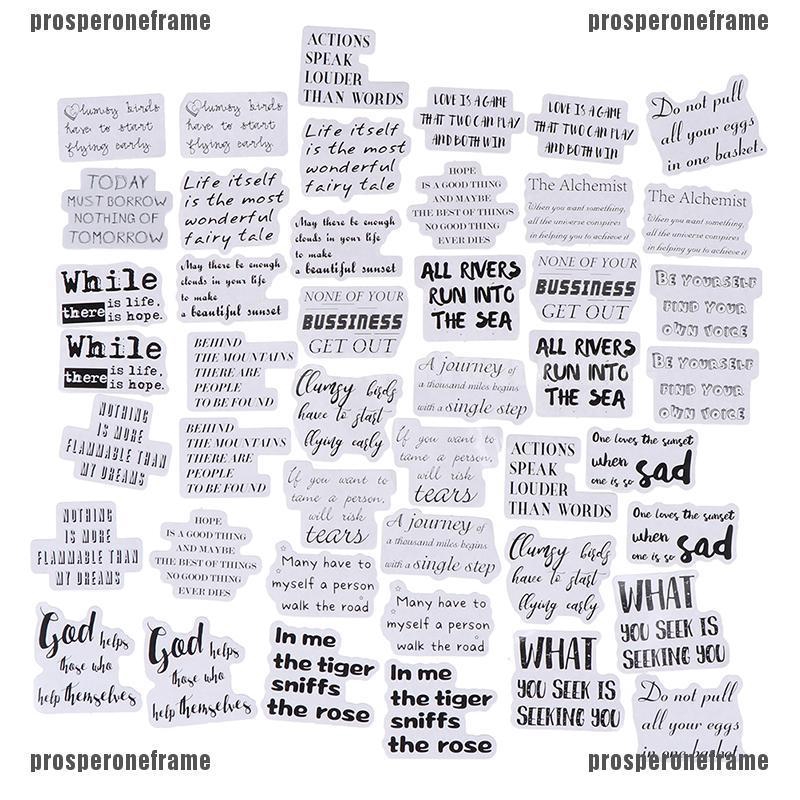 prosperoneframe
prosperoneframe
ACTIONS
SPEAK
LOUDER
THAN WORDS
Clumsy birds
have to start
flying early.
Clumsy birds
have to start
flying early.
Life itself
is the most
wonderful
fairy tale
LOVE IS A GAME
THAT TWO CAN PLAY
AND BOTH WIN
LOVE IS A GAME
THAT TWO CAN PLAY
AND BOTH WIN
Do not pull
all your eggs
in one basket.
TODAY
MUST BORROW
NOTHING OF
TOMORROW
Life itself
is the most
wonderful
fairy tale
HOPE
IS A GOOD THING
AND MAYBE
THE BEST OF THINGS
NO GOOD THING
EVER DIES
The Alchemist
When you want something,
all the universe conspires
in helping you to achieve it
The Alchemist
When you want something,
all the universe conspires
in helping you to achieve it
May there be enough
clouds in your life
to make
a beautiful sunset
While
there is life.
is hope.
May there be enough
clouds in your life
to make
a beautiful sunset
NONE OF YOUR
BUSSINESS
GET OUT
ALL RIVERS
RUN INTO
THE SEA
NONE OF YOUR
BUSSINESS
GET OUT
BE YOURSELF
FIND YOUR
OWN VOICE
While
there is life.
is hope.
BEHIND
THE MOUNTAINS
THERE ARE
PEOPLE
TO BE FOUND
Clumsy birds
have to start
llying early
A journey of
a thousand miles begins
with a single step
ALL RIVERS
RUN INTO
THE SEA
BE YOURSELF
FIND YOUR
OWN VOICE
NOTHING
IS MORE
FLAMMABLE THAN
MY DREAMS
BEHIND
THE MOUNTAINS
THERE ARE
PEOPLE
TO BE FOUND
If you want to
tame a person,
will risk
tears
If you want to
tame a person,
will risk
tears
ACTIONS
SPEAK
LOUDER
THAN WORDS
One loves the sunset
when
one is so sad
NOTHING
IS MORE
FLAMMABLE THAN
MY DREAMS
HOPE
IS A GOOD THING
AND MAYBE
THE BEST OF THINGS
NO GOOD THING
EVER DIES
A journey of
a thousand miles begins
with a single step
One loves the sunset
when
one is so sad
Many have to
myself a person
walk the road
Clumsy birds
have to start
llying early
Many have to
myself a person
walk the road
WHAT
YOU SEEK IS
SEEKING YOU
God helps
those who
help themselves
God helps
those who
help themselves
In me
the tiger
sniffs
the rose
In me
the tiger
sniffs
the rose
WHAT
YOU SEEK IS
SEEKING YOU
Do not pull
all your eggs
in one basket.
prosperoneframe
prosperoneframe